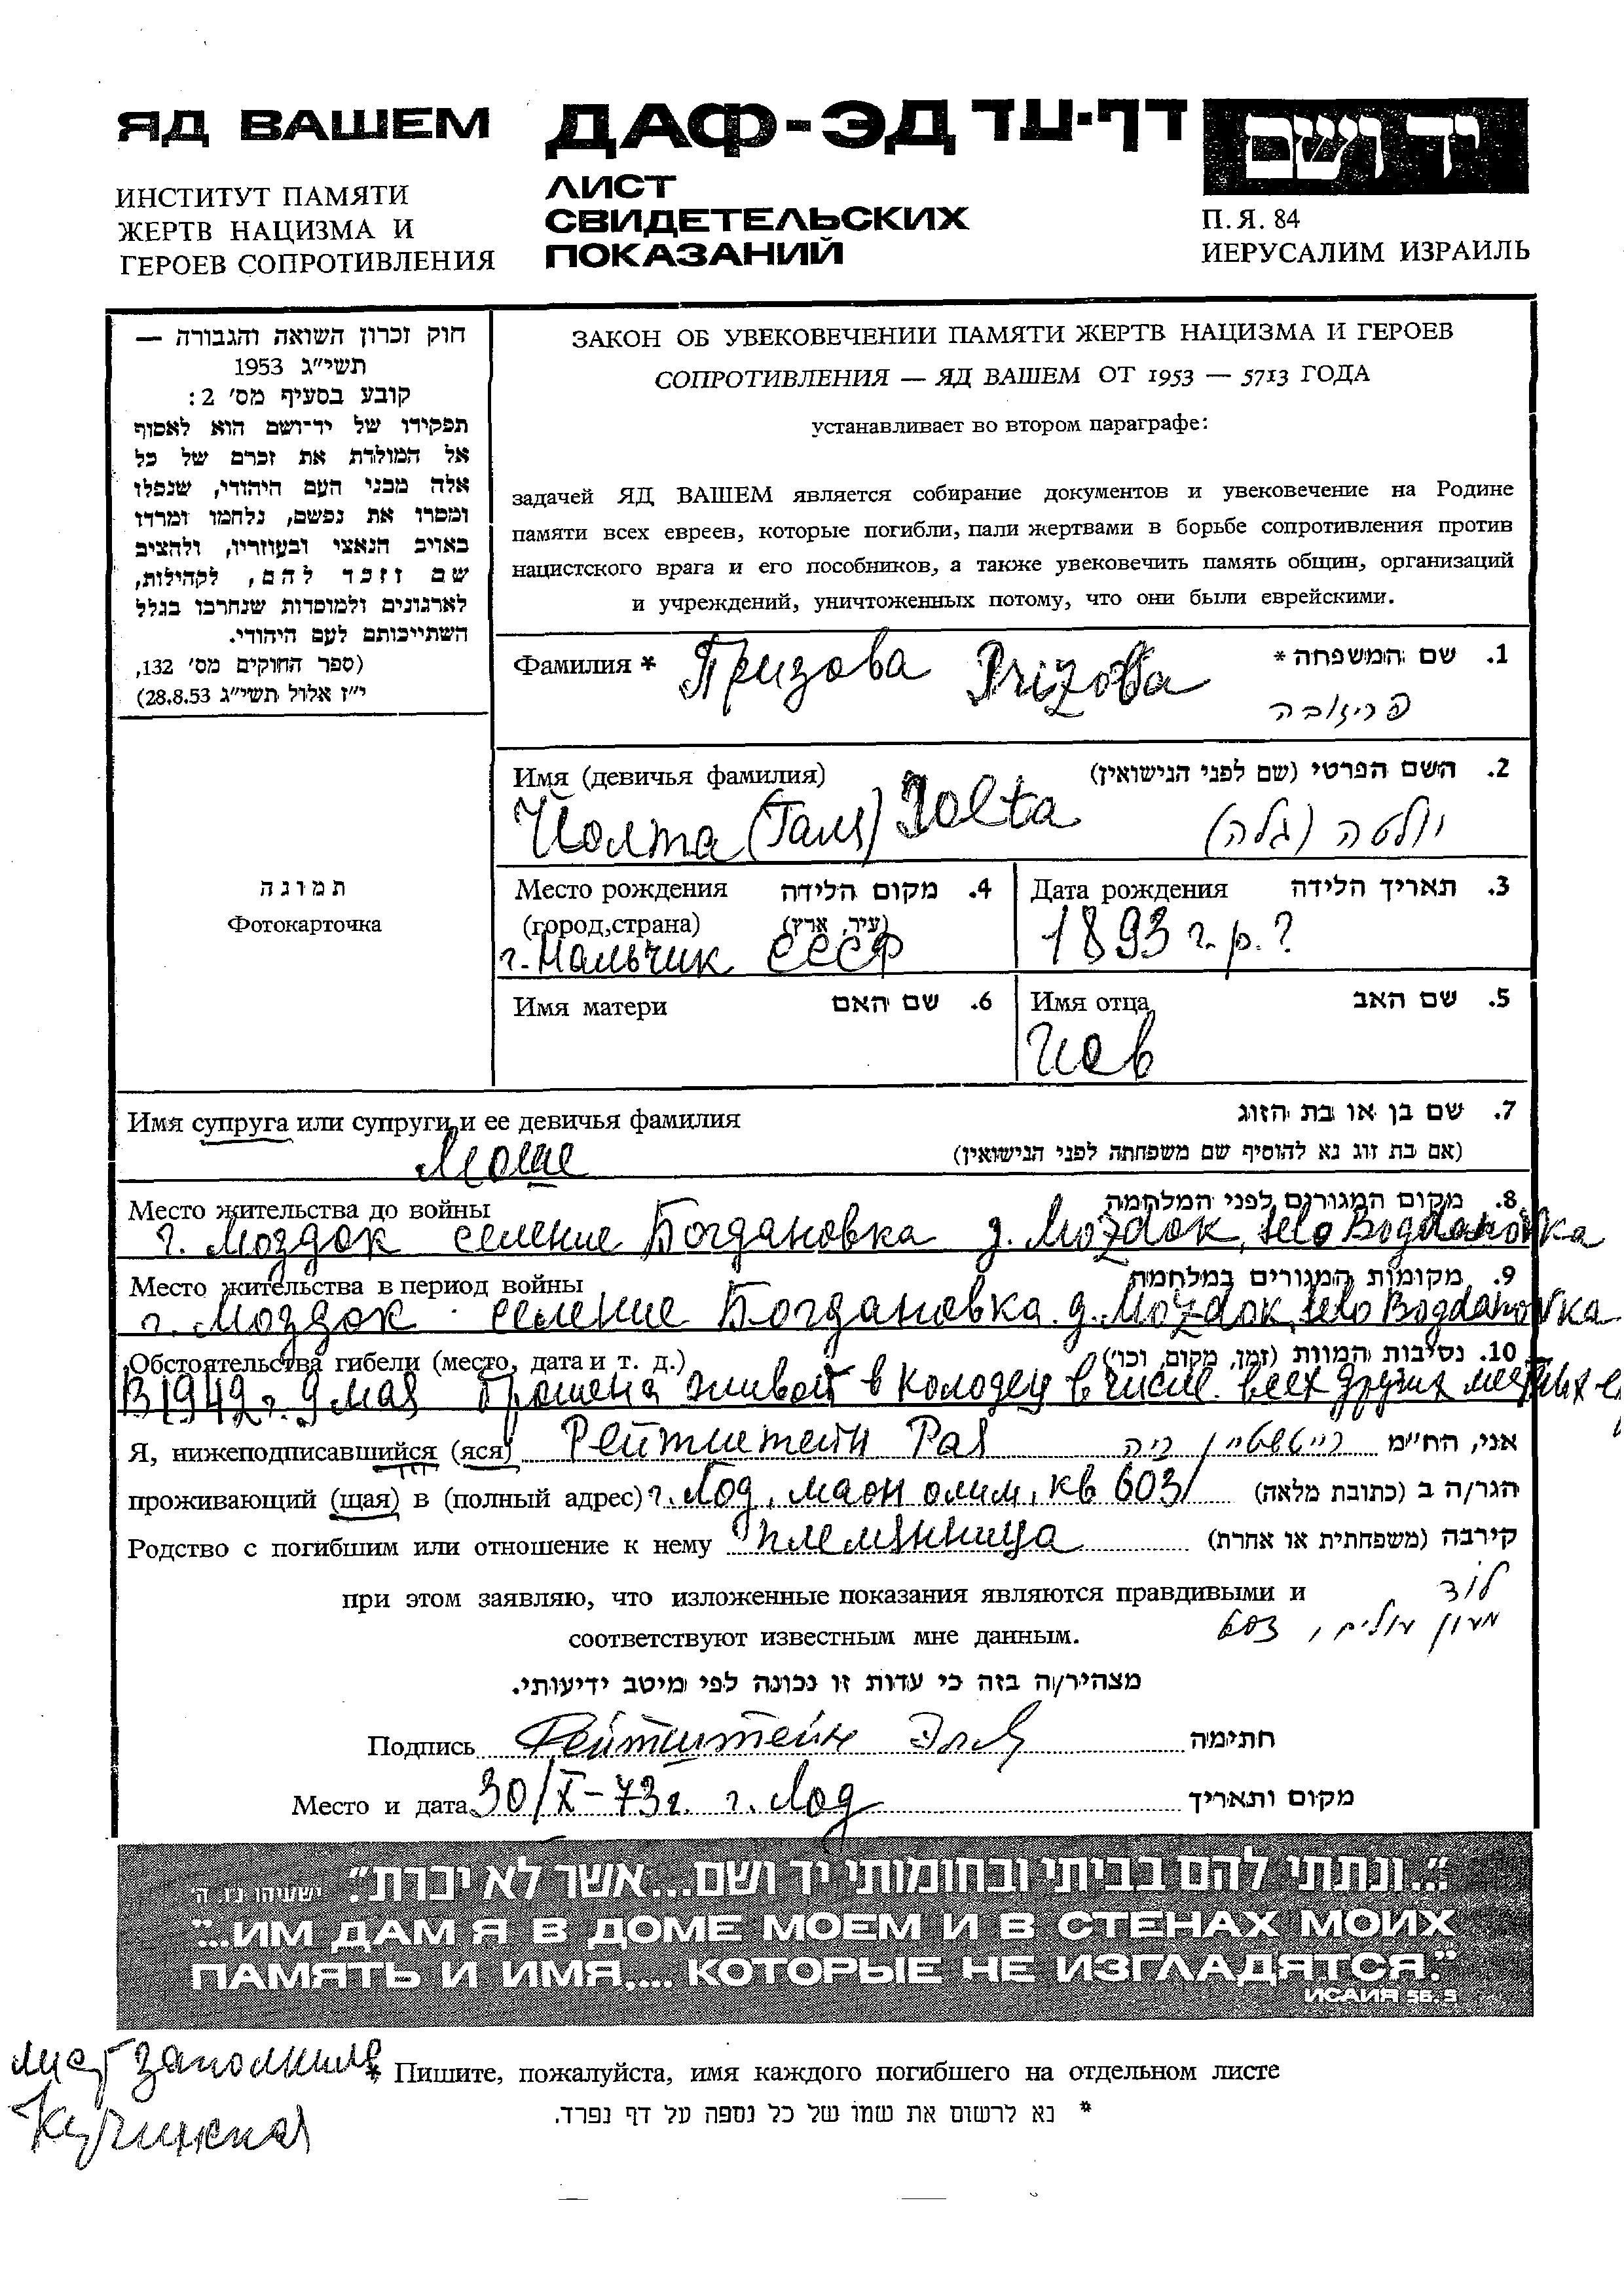 ЯД ВАШЕМ
ИНСТИТУТ ПАМЯТИ
ЖЕРТВ НАЦИЗМА И
ГЕРОЕВ СОПРОТИВЛЕНИЯ
ДАФ-ЭД דף-עד
ЛИСТ
СВИДЕТЕЛЬСКИХ
ПОКАЗАНИЙ
יד ושם
П.Я. 84
ИЕРУСАЛИМ ИЗРАИЛЬ
חוק זכרון השואה והגבורה —
תשי״ג 1953
קובע בסעיף מס׳ 2:
תפקידו של יד־ושם הוא לאסוף
אל המולדת את זכרם של כל
אלה מבני העם היהודי, שנפלו
ומסרו את נפשם, נלחמו ומרדו
באויב הנאצי ובעוזריו, ולהציב
שם וזכר להם, לקהילות,
לארגונים ולמוסדות שנחרבו בגלל
השתייכותם לעם היהודי.
(ספר החוקים מס׳ 132,
י״ז אלול תשי״ג 28.8.53)
תמונה
Фотокарточка
ЗАКОН ОБ УВЕКОВЕЧЕНИИ ПАМЯТИ ЖЕРТВ НАЦИЗМА И ГЕРОЕВ
СОПРОТИВЛЕНИЯ — ЯД ВАШЕМ ОТ 1953 — 5713 ГОДА
устанавливает во втором параграфе:
задачей ЯД ВАШЕМ является собирание документов и увековечение на Родине
памяти всех евреев, которые погибли, пали жертвами в борьбе сопротивления против
нацистского врага и его пособников, а также увековечить память общин, организаций
и учреждений, уничтоженных потому, что они были еврейскими.
Фамилия * Призова Prizova 1. שם המשפחה *
פריזובה
Имя (девичья фамилия) 2. השם הפרטי (שם לפני הנישואין)
Йолта (Галя) Jolta יולטה (גלה)
Место рождения 4. מקום הלידה
(город,страна) (עיר, ארץ)
г. Нальчик СССР
Дата рождения 3. תאריך הלידה
1893 г.р.?
Имя матери 6. שם האם
Имя отца 5. שם האב
Иов
Имя супруга или супруги и ее девичья фамилия 7. שם בן או בת הזוג
Моше (אם בת זוג נא להוסיף שם משפחתה לפני הנישואין)
Место жительства до войны 8. מקום המגורים לפני המלחמה
г. Моздок селение Богдановка g. Mozdok, selo Bogdanovka
Место жительства в период войны 9. מקומות המגורים במלחמה
г. Моздок селение Богдановка g. Mozdok, selo Bogdanovka
Обстоятельства гибели (место, дата и т. д.) 10. נסיבות המוות (זמן, מקום, וכו׳)
В 1942 г. 9 мая брошена живой в колодец в числе всех других
Я, нижеподписавшийся (яся) Рейтштейн Рая רייטשטיין ריה אני, הח״מ
проживающий (щая) в (полный адрес) г. Лод, маон олим, кв 603/ הגר/ה ב (כתובת מלאה)
Родство с погибшим или отношение к нему племянница קירבה (משפחתית או אחרת)
при этом заявляю, что изложенные показания являются правдивыми и לוד
соответствуют известным мне данным. מעון עולים, 603
מצהיר/ה בזה כי עדות זו נכונה לפי מיטב ידיעותי.
Подпись Рейтштейн חתימה
Место и дата 30/X-73г. г. Лод מקום ותאריך
״...ונתתי להם בביתי ובחומותי יד ושם...אשר לא יכרת״. ישעיהו נ״ו, ה׳
"...ИМ ДАМ Я В ДОМЕ МОЕМ И В СТЕНАХ МОИХ
ПАМЯТЬ И ИМЯ,... КОТОРЫЕ НЕ ИЗГЛАДЯТСЯ."
ИСАИЯ 56.5
лист заполнила
* Пишите, пожалуйста, имя каждого погибшего на отдельном листе
* נא לרשום את שמו של כל נספה על דף נפרד.